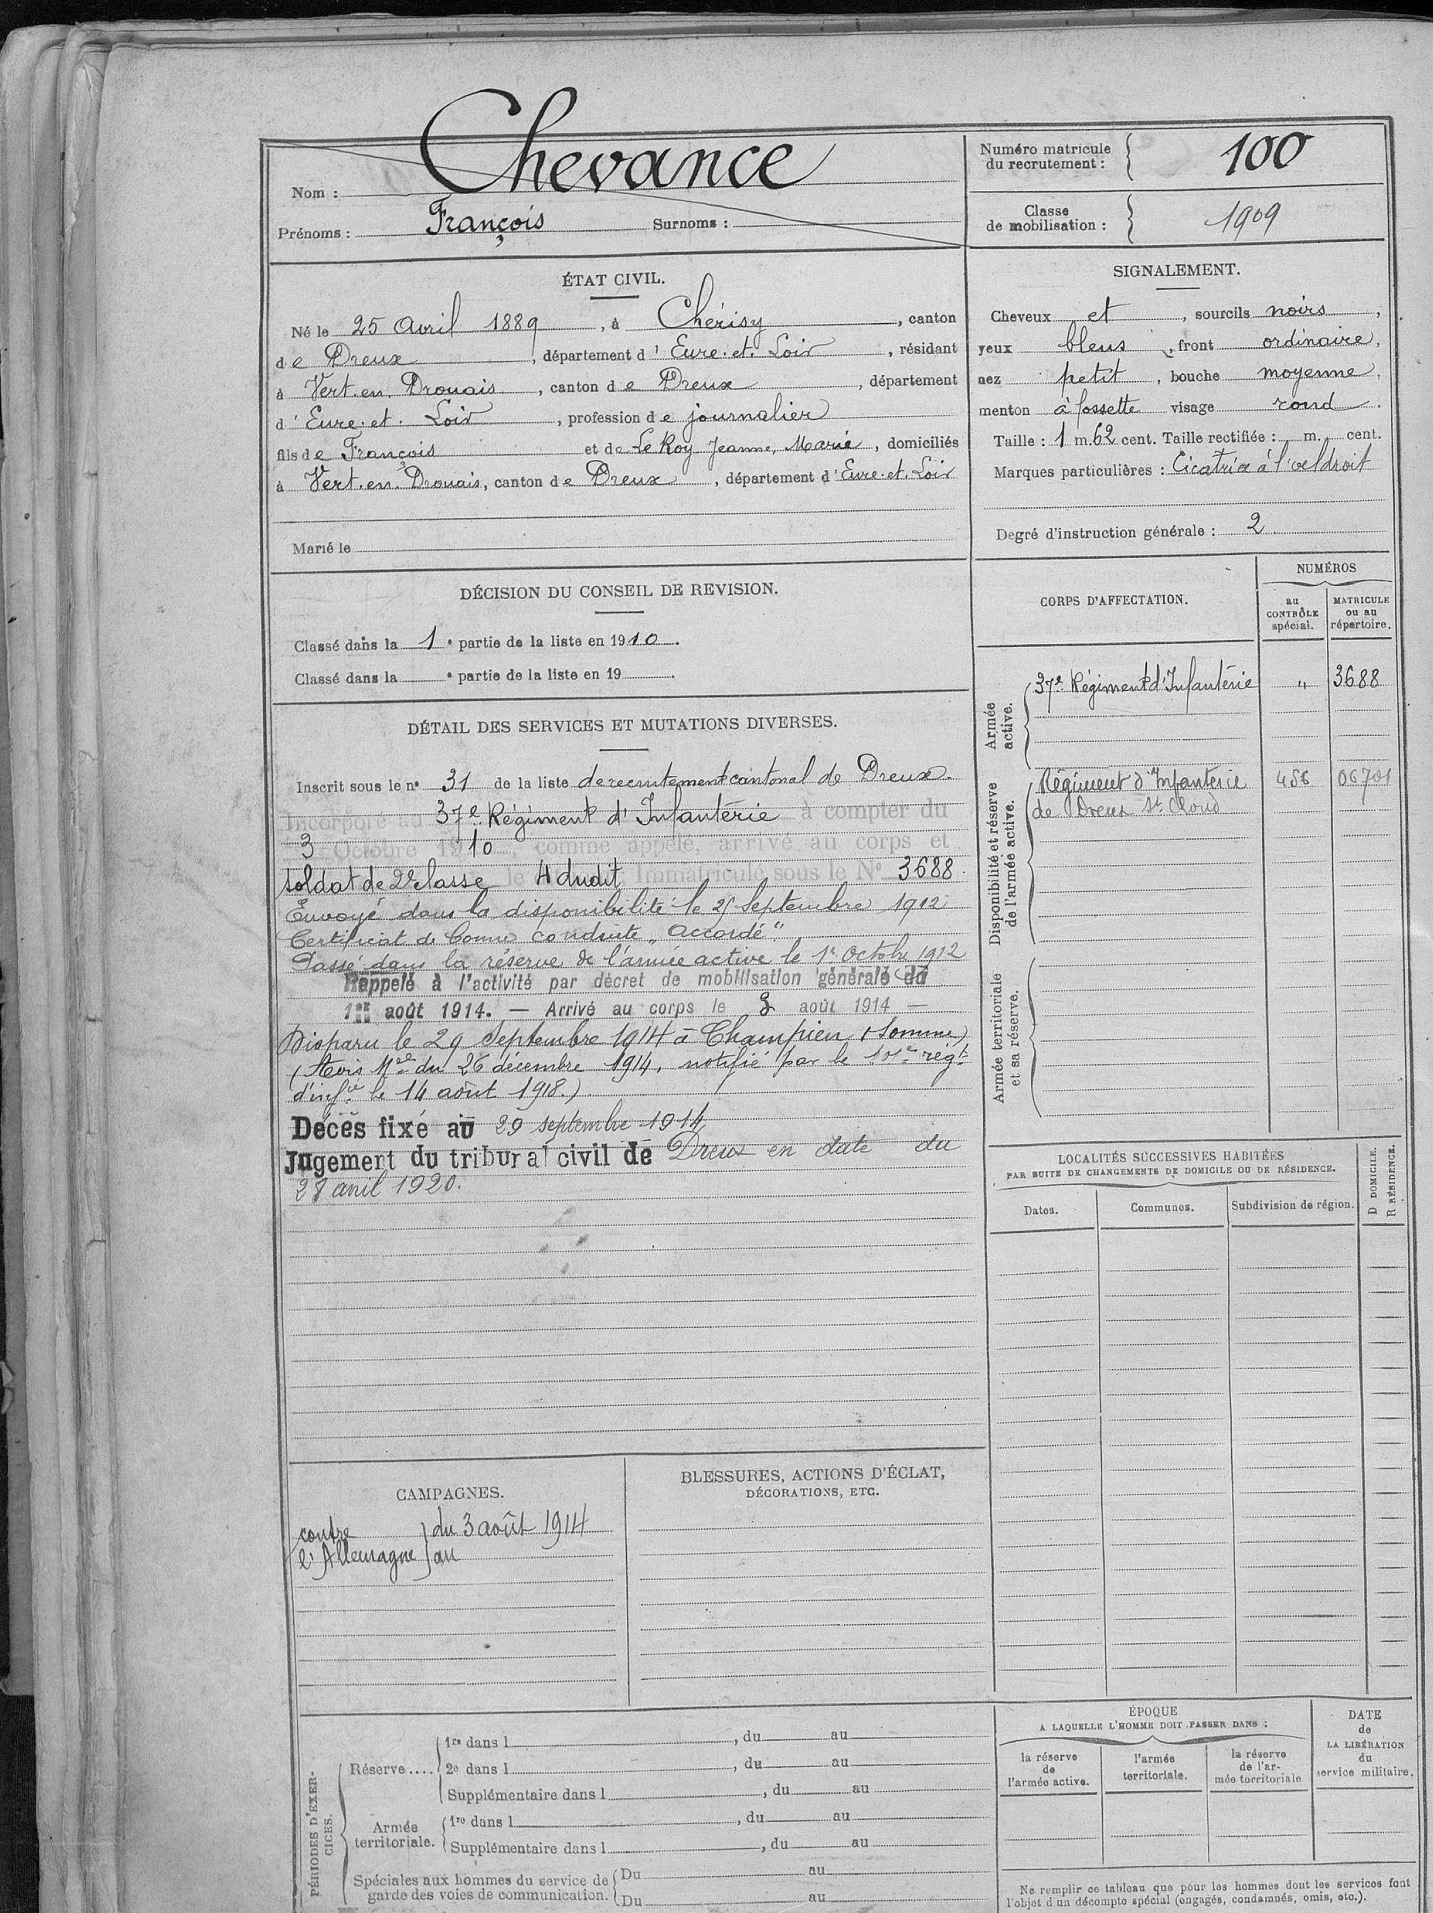 Nom : Chevance
Prénoms : François Surnoms :
Numéro matricule
du recrutement : 100
Classe
de mobilisation : 1909
ÉTAT CIVIL.
Né le 25 Avril 1889, à Chérisy, canton
de Dreux, département d'Eure-et-Loir, résidant
à Vert-en-Drouais, canton de Dreux, département
d'Eure-et-Loir, profession de journalier
fils de François et de Le Roy Jeanne, Marie, domiciliés
à Vert-en-Drouais, canton de Dreux, département d'Eure-et-Loir
Marié le
SIGNALEMENT.
Cheveux et, sourcils noirs,
yeux bleus, front ordinaire,
nez petit, bouche moyenne,
menton à fossette visage rond.
Taille : 1 m. 62 cent. Taille rectifiée : m. cent.
Marques particulières : Cicatrice à l'œil droit
Degré d'instruction générale : 2
DÉCISION DU CONSEIL DE REVISION.
Classé dans la 1e partie de la liste en 1910.
Classé dans la e partie de la liste en 19 .
DÉTAIL DES SERVICES ET MUTATIONS DIVERSES.
Inscrit sous le no 31 de la liste de recrutement cantonal de Dreux.
Incorporé au 37e Régiment d'Infanterie à compter du
3 Octobre 1910, comme appelé, arrivé au corps et
soldat de 2e classe le dudit, Immatriculé sous le No 3688.
Envoyé dans la disponibilité le 25 Septembre 1912
Certificat de bonne conduite "Accordé".
Passé dans la réserve de l'armée active le 1er Octobre 1912
Rappelé à l'activité par décret de mobilisation générale du
1er août 1914. — Arrivé au corps le 3 août 1914 —
Disparu le 29 Septembre 1914 à Champien (Somme)
(Avis Mel du 26 décembre 1914, notifié par le 101e régt
d'infie le 14 août 1918.)
Décès fixé au 29 septembre 1914
Jugement du tribunal civil de Dreux en date du
28 avril 1920.
CORPS D'AFFECTATION.
NUMÉROS
au
CONTRÔLE
spécial.
MATRICULE
ou au
répertoire.
Armée
active.
37e Régiment d'Infanterie " 3688
Disponibilité et réserve
de l'armée active.
Régiment d'Infanterie 456 06701
de Dreux St Cloud
Armée territoriale
et sa réserve.
LOCALITÉS SUCCESSIVES HABITÉES
PAR SUITE DE CHANGEMENTS DE DOMICILE OU DE RÉSIDENCE.
Dates.
Communes.
Subdivision de région.
D DOMICILE.
R RÉSIDENCE.
CAMPAGNES.
contre } du 3 août 1914
l'Allemagne } au
BLESSURES, ACTIONS D'ÉCLAT,
DÉCORATIONS, ETC.
PÉRIODES D'EXER-
CICES.
Réserve....
1re dans l , du au
2e dans l , du au
Supplémentaire dans l , du au
Armée
territoriale.
1re dans l , du au
Supplémentaire dans l , du au
Spéciales aux hommes du service de
garde des voies de communication.
Du au
Du au
ÉPOQUE
A LAQUELLE L'HOMME DOIT PASSER DANS :
la réserve
de
l'armée active.
l'armée
territoriale.
la réserve
de l'ar-
mée territoriale
DATE
de
LA LIBÉRATION
du
service militaire.
Ne remplir ce tableau que pour les hommes dont les services font
l'objet d'un décompte spécial (engagés, condamnés, omis, etc.).